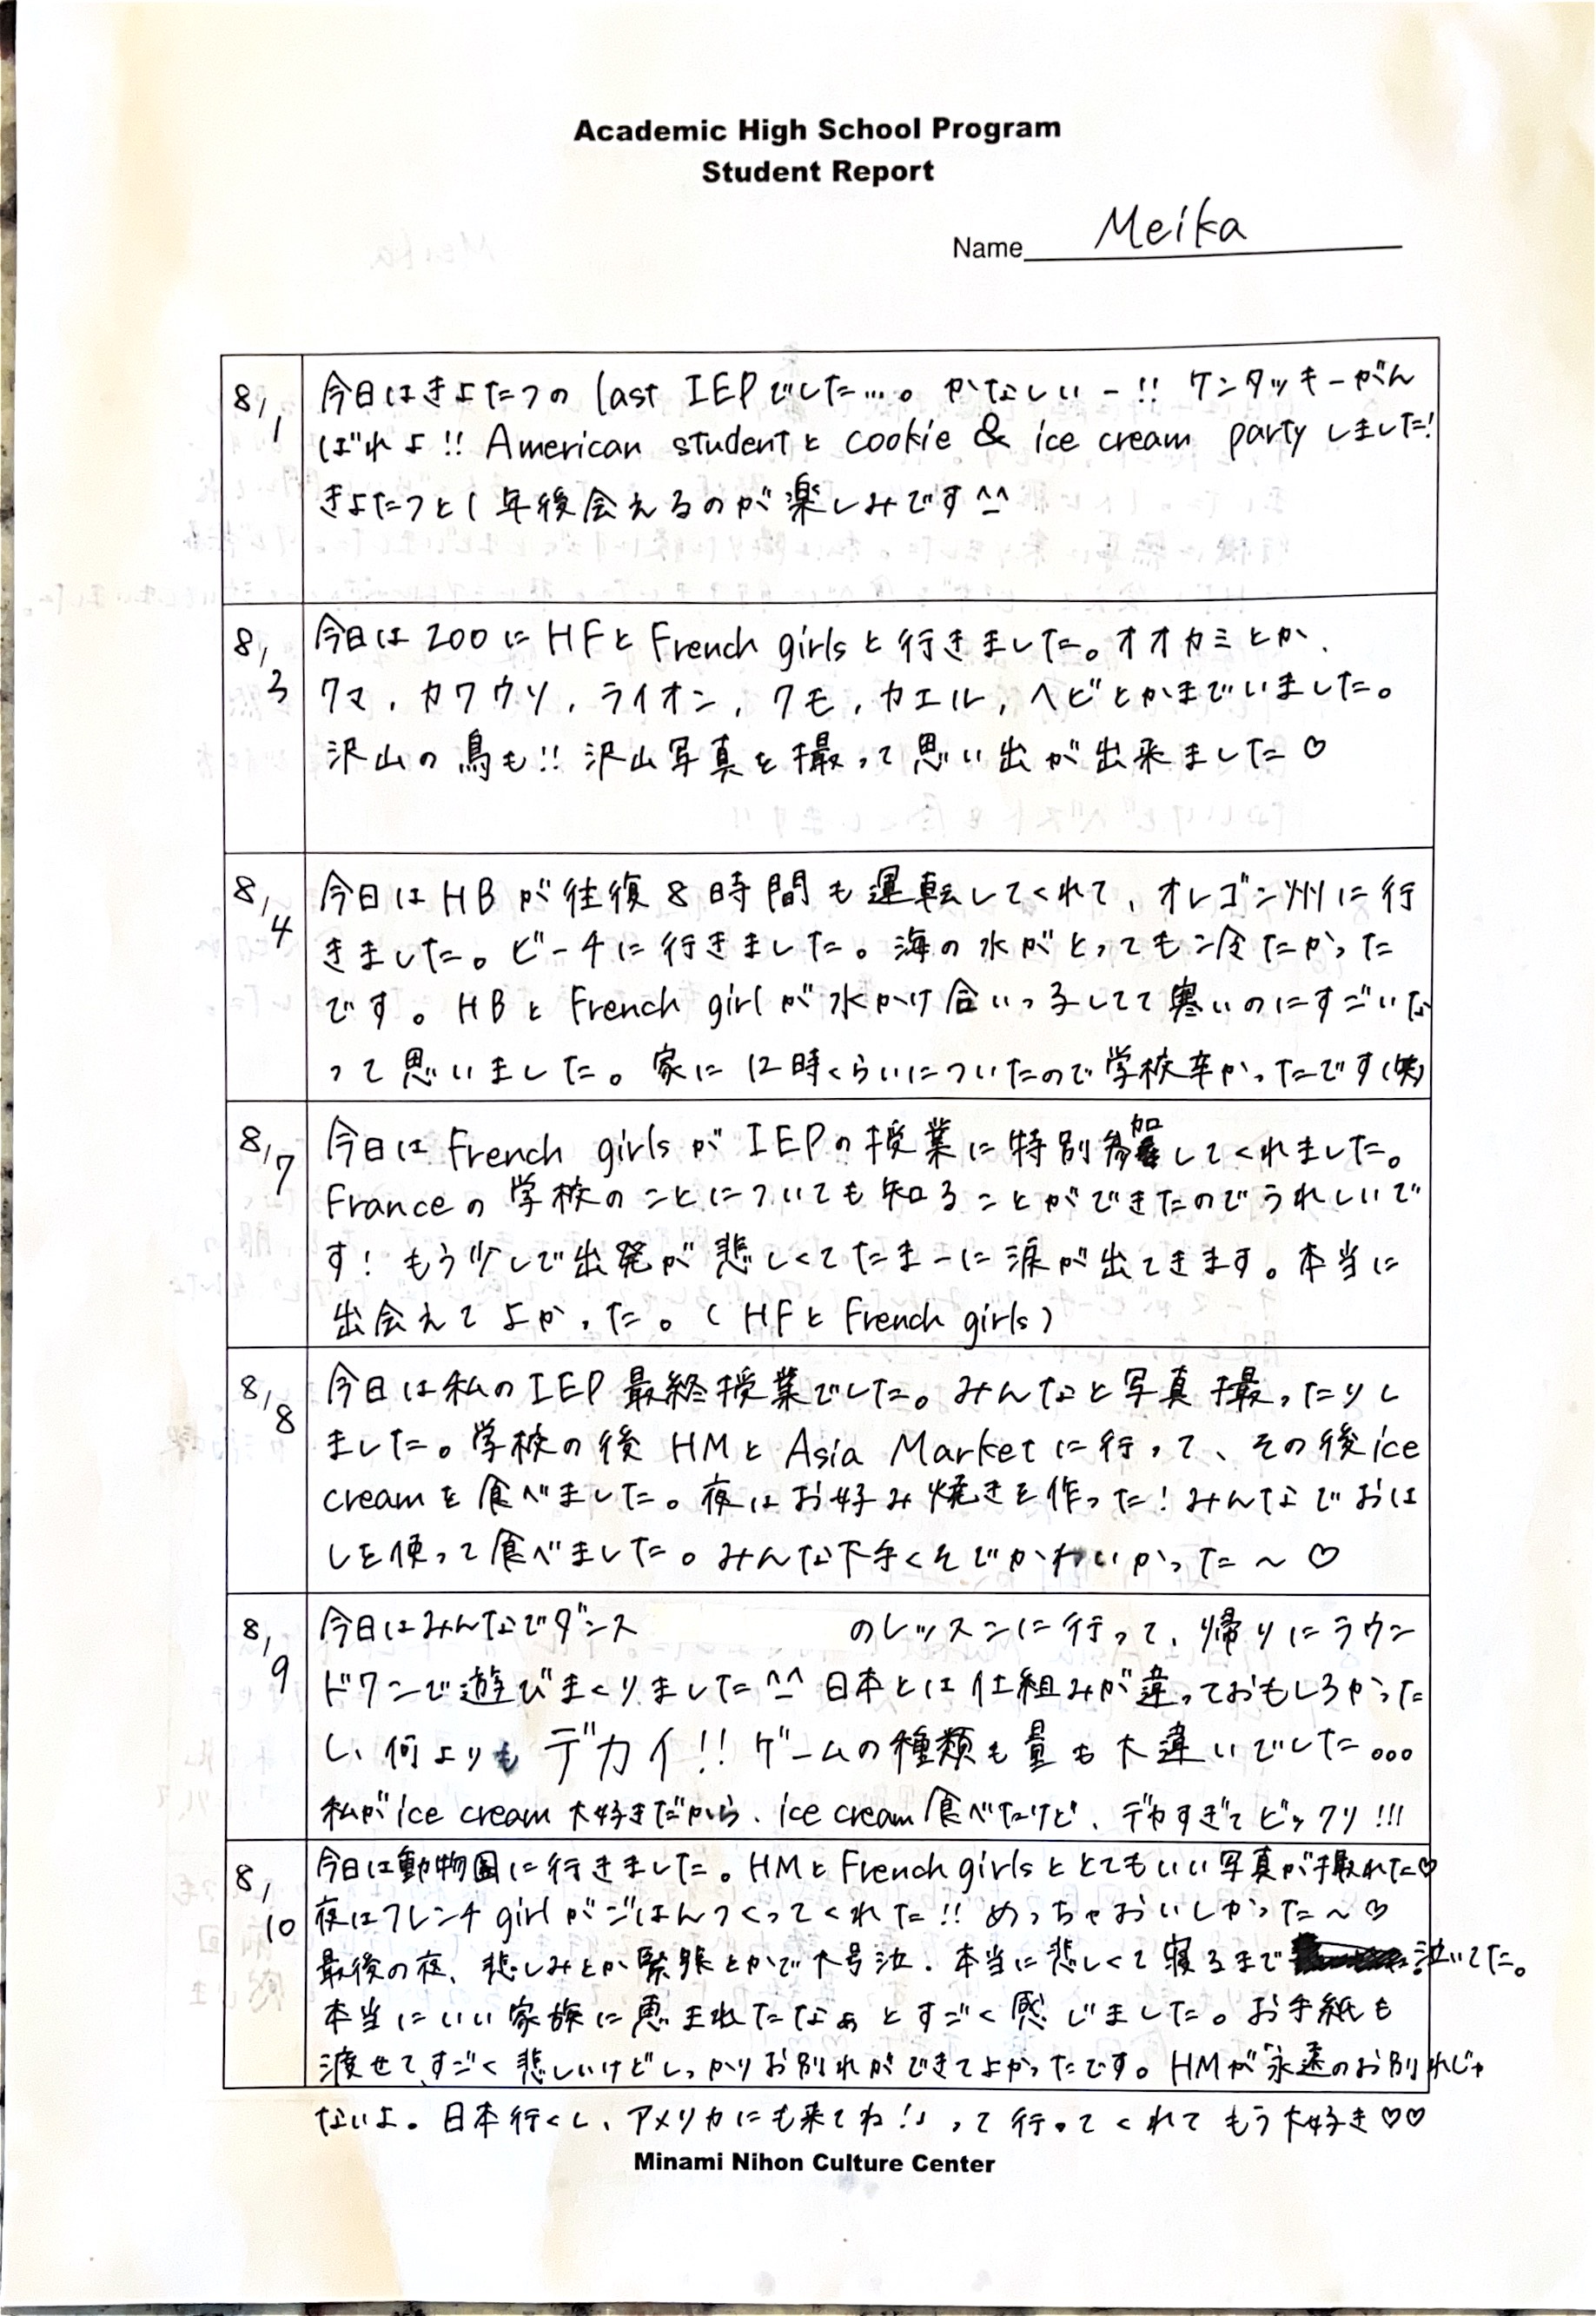 Academic High School Program
Student Report
Name Meika
8/1
今日はきよたつの last IEPでした…。かなしいー!! ケンタッキーがん
ばれよ!! American studentと cookie & ice cream party しました!
きよたつと1年後会えるのが楽しみです^^
8/3
今日は ZOOに HFと French girlsと行きました。オオカミとか、
クマ、カワウソ、ライオン、クモ、カエル、ヘビとかまでいました。
沢山の鳥も!! 沢山写真を撮って思い出が出来ました♡
8/4
今日は HBが往復8時間も運転してくれて、オレゴン州に行
きました。ビーチに行きました。海の水がとってもン令たかった
です。HBと French girlが水かけ合いっ子してて寒いのにすごいな
って思いました。家に12時くらいについたので学校辛かったです(笑)
8/7
今日は French girlsがIEPの授業に特別参加してくれました。
Franceの学校のことについても知ることができたのでうれしいで
す! もう少しで出発が悲しくてたまーに涙が出てきます。本当に
出会えてよかった。(HFと French girls)
8/8
今日は私のIEP最終授業でした。みんなと写真撮ったりし
ました。学校の後 HMと Asia Marketに行って、その後ice
creamを食べました。夜はお好み焼きを作った! みんなでおは
しを使って食べました。みんな下手くそでかわいかった〜♡
8/9
今日はみんなでダンス のレッスンに行って、帰りにラウン
ドワンで遊びまくりました^^ 日本とは仕組みが違っておもしろかった
し、何よりも デカイ!! ゲームの種類も量も大違いでした...
私がice cream大好きだから、ice cream食べたけど、デカすぎてビックリ!!!
8/10
今日は動物園に行きました。HMと French girlsととてもいい写真が撮れた♡
夜はフレンチ girlがごはんつくってくれた!! めっちゃおいしかった〜♡
最後の夜、悲しみとか緊張とかで大号泣。本当に悲しくて寝るまで泣いてた。
本当にいい家族に恵まれたなぁとすごく感じました。お手紙も
渡せてすごく悲しいけどしっかりお別れができてよかったです。HMが「永遠のお別れじゃ
ないよ。日本行くし、アメリカにも来てね!」って行ってくれてもう大好き♡♡
Minami Nihon Culture Center